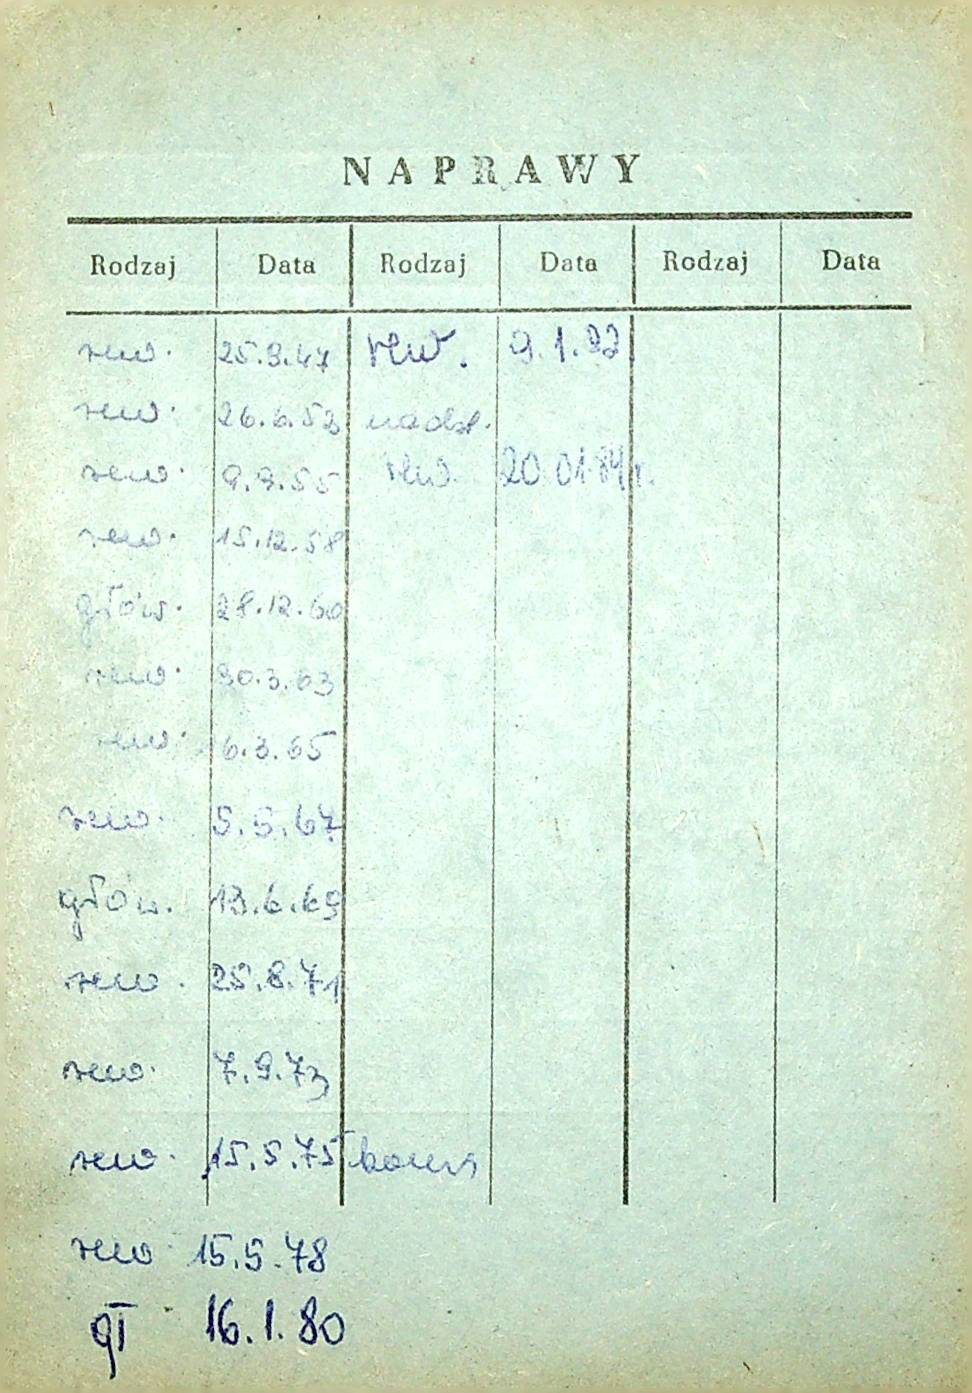 NAPRAWY
Rodzaj Data Rodzaj Data Rodzaj Data
rew. 25.9.47 rew. 9.1.82
rew. 26.6.53 nadzt.
rew. 9.9.55 rew. 20.01.84 r.
rew. 15.12.58
głów. 28.12.60
rew. 30.3.63
rew. 16.3.65
rew. 5.5.67
głów. 13.6.69
rew. 25.8.71
rew. 7.9.73
rew. 15.5.75
rew 15.5.78
gł 16.1.80